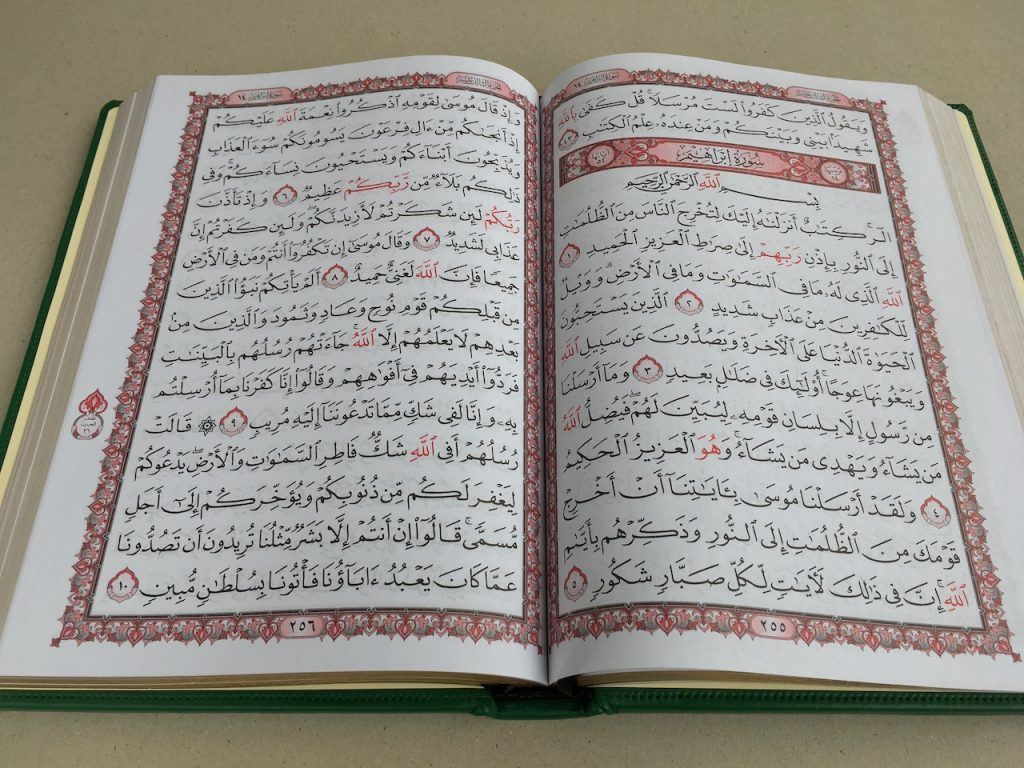 الجزء الثالث عشر
سورة إبراهيم ١٤
وَيَقُولُ ٱلَّذِينَ كَفَرُوا۟ لَسْتَ مُرْسَلًا ۚ قُلْ كَفَىٰ بِٱللَّهِ
شَهِيدًۢا بَيْنِى وَبَيْنَكُمْ وَمَنْ عِندَهُۥ عِلْمُ ٱلْكِتَٰبِ ٤٣
سُورَةُ إِبْرَاهِيمَ
بِسْمِ ٱللَّهِ ٱلرَّحْمَٰنِ ٱلرَّحِيمِ
الٓر ۚ كِتَٰبٌ أَنزَلْنَٰهُ إِلَيْكَ لِتُخْرِجَ ٱلنَّاسَ مِنَ ٱلظُّلُمَٰتِ
إِلَى ٱلنُّورِ بِإِذْنِ رَبِّهِمْ إِلَىٰ صِرَٰطِ ٱلْعَزِيزِ ٱلْحَمِيدِ ١
ٱللَّهِ ٱلَّذِى لَهُۥ مَا فِى ٱلسَّمَٰوَٰتِ وَمَا فِى ٱلْأَرْضِ ۗ وَوَيْلٌ
لِّلْكَٰفِرِينَ مِنْ عَذَابٍ شَدِيدٍ ٢ ٱلَّذِينَ يَسْتَحِبُّونَ
ٱلْحَيَوٰةَ ٱلدُّنْيَا عَلَى ٱلْءَاخِرَةِ وَيَصُدُّونَ عَن سَبِيلِ ٱللَّهِ
وَيَبْغُونَهَا عِوَجًا ۚ أُو۟لَٰٓئِكَ فِى ضَلَٰلٍۭ بَعِيدٍ ٣ وَمَآ أَرْسَلْنَا
مِن رَّسُولٍ إِلَّا بِلِسَانِ قَوْمِهِۦ لِيُبَيِّنَ لَهُمْ ۖ فَيُضِلُّ ٱللَّهُ
مَن يَشَآءُ وَيَهْدِى مَن يَشَآءُ ۚ وَهُوَ ٱلْعَزِيزُ ٱلْحَكِيمُ
٤ وَلَقَدْ أَرْسَلْنَا مُوسَىٰ بِـَٔايَٰتِنَآ أَنْ أَخْرِجْ
قَوْمَكَ مِنَ ٱلظُّلُمَٰتِ إِلَى ٱلنُّورِ وَذَكِّرْهُم بِأَيَّىٰمِ
ٱللَّهِ ۚ إِنَّ فِى ذَٰلِكَ لَءَايَٰتٍ لِّكُلِّ صَبَّارٍ شَكُورٍ ٥
٢٥٥
الجزء الثالث عشر
سورة إبراهيم ١٤
وَإِذْ قَالَ مُوسَىٰ لِقَوْمِهِ ٱذْكُرُوا۟ نِعْمَةَ ٱللَّهِ عَلَيْكُمْ
إِذْ أَنجَىٰكُم مِّنْ ءَالِ فِرْعَوْنَ يَسُومُونَكُمْ سُوٓءَ ٱلْعَذَابِ
وَيُذَبِّحُونَ أَبْنَآءَكُمْ وَيَسْتَحْيُونَ نِسَآءَكُمْ ۚ وَفِى
ذَٰلِكُم بَلَآءٌ مِّن رَّبِّكُمْ عَظِيمٌ ٦ وَإِذْ تَأَذَّنَ
رَبُّكُمْ لَئِن شَكَرْتُمْ لَأَزِيدَنَّكُمْ ۖ وَلَئِن كَفَرْتُمْ إِنَّ
عَذَابِى لَشَدِيدٌ ٧ وَقَالَ مُوسَىٰٓ إِن تَكْفُرُوٓا۟ أَنتُمْ وَمَن فِى ٱلْأَرْضِ
جَمِيعًا فَإِنَّ ٱللَّهَ لَغَنِىٌّ حَمِيدٌ ٨ أَلَمْ يَأْتِكُمْ نَبَؤُا۟ ٱلَّذِينَ
مِن قَبْلِكُمْ قَوْمِ نُوحٍ وَعَادٍ وَثَمُودَ ۛ وَٱلَّذِينَ مِنۢ
بَعْدِهِمْ ۛ لَا يَعْلَمُهُمْ إِلَّا ٱللَّهُ ۚ جَآءَتْهُمْ رُسُلُهُم بِٱلْبَيِّنَٰتِ
فَرَدُّوٓا۟ أَيْدِيَهُمْ فِىٓ أَفْوَٰهِهِمْ وَقَالُوٓا۟ إِنَّا كَفَرْنَا بِمَآ أُرْسِلْتُم
بِهِۦ وَإِنَّا لَفِى شَكٍّ مِّمَّا تَدْعُونَنَآ إِلَيْهِ مُرِيبٍ ٩ ۞ قَالَتْ
رُسُلُهُمْ أَفِى ٱللَّهِ شَكٌّ فَاطِرِ ٱلسَّمَٰوَٰتِ وَٱلْأَرْضِ ۖ يَدْعُوكُمْ
لِيَغْفِرَ لَكُم مِّن ذُنُوبِكُمْ وَيُؤَخِّرَكُمْ إِلَىٰٓ أَجَلٍ
مُّسَمًّى ۚ قَالُوٓا۟ إِنْ أَنتُمْ إِلَّا بَشَرٌ مِّثْلُنَا تُرِيدُونَ أَن تَصُدُّونَا
عَمَّا كَانَ يَعْبُدُ ءَابَآؤُنَا فَأْتُونَا بِسُلْطَٰنٍ مُّبِينٍ ١٠
٢٥٦